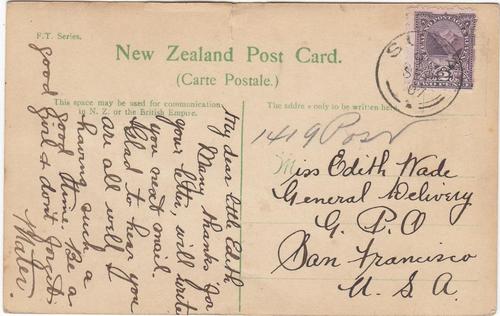 F.T. Series.
New Zealand Post Card.
(Carte Postale.)
This space may be used for communication
in N. Z. or the British Empire.
The address only to be written here.
My dear little Edith
Many thanks for
your letter, will write
you next mail.
Glad to hear you
are all well &
having such a
good time. Be a
good girl & don't forget
Mater.
1419 Post
Miss Edith Wade
General Delivery
G. P. O
San Francisco
U. S A